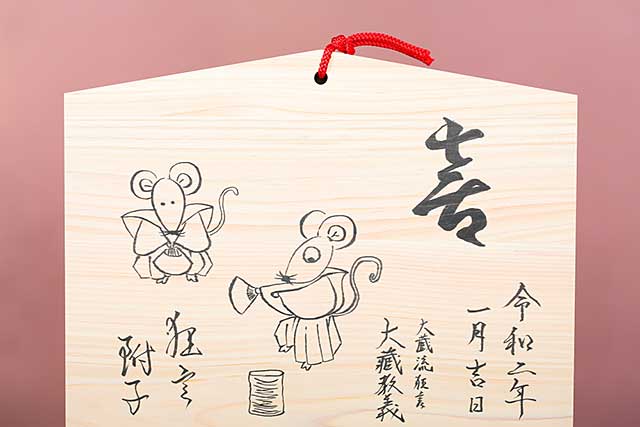 令和二年
一月吉日
大蔵流狂言
大藏教義
狂言
附子